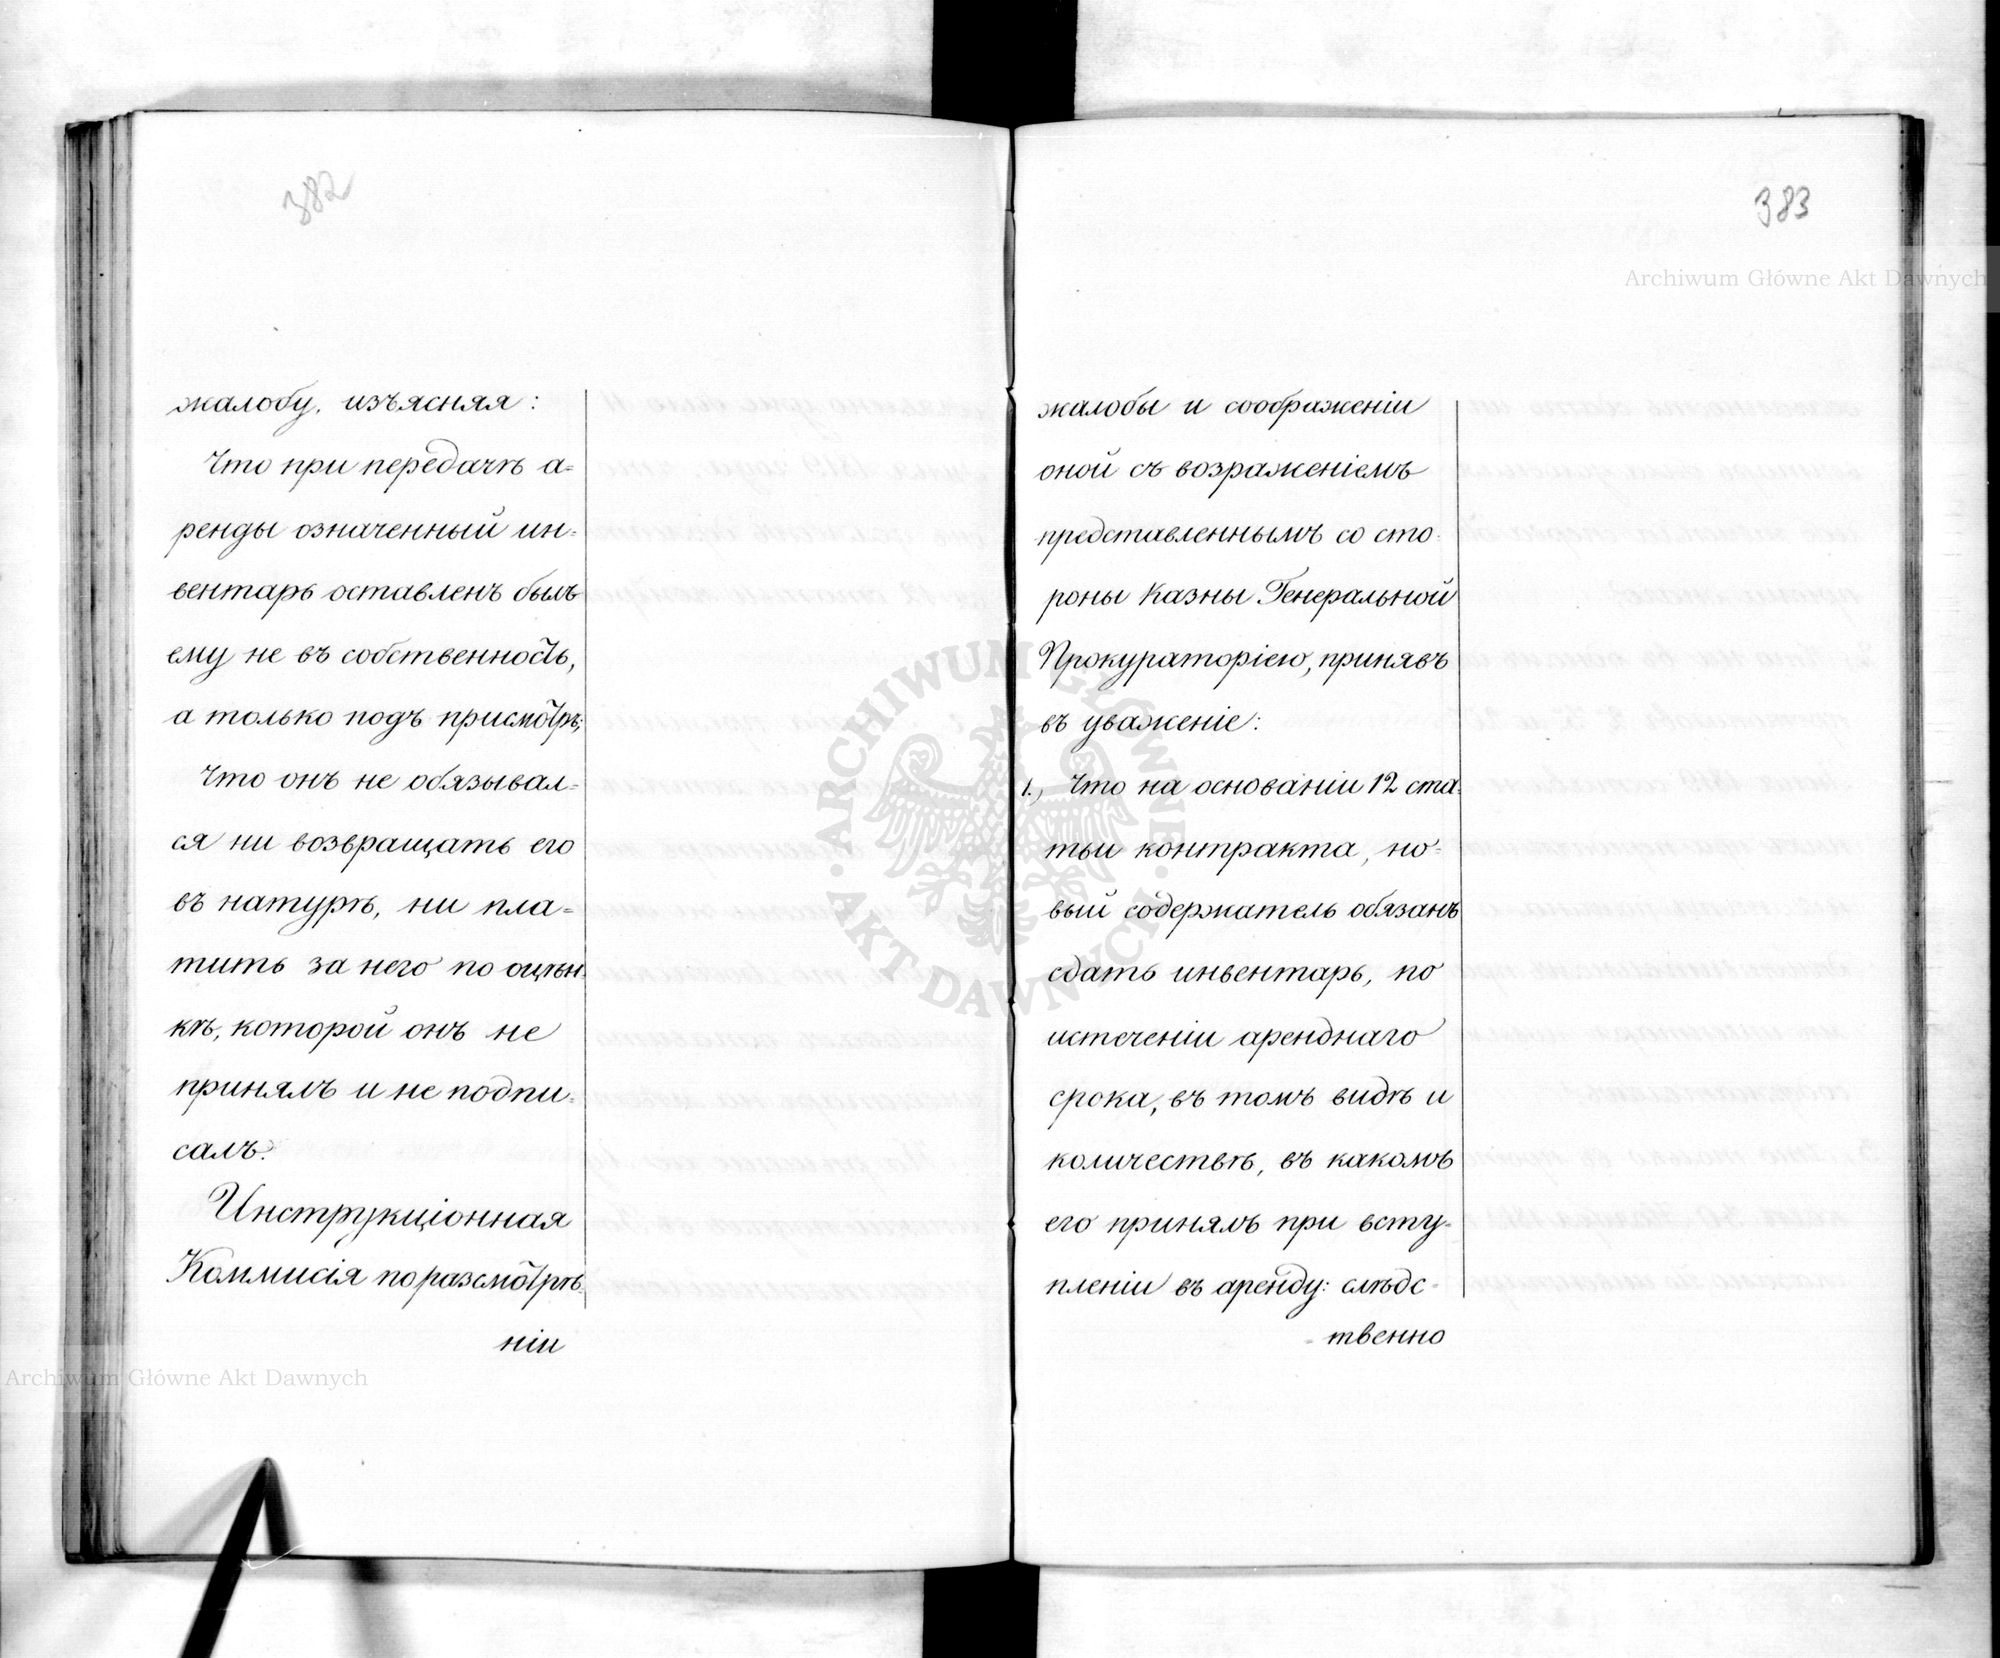 382
жалобу, изъясняя:
Что при передачѣ а=
ренды означенный ин=
вентарь оставленъ былъ
ему не въ собственность,
а только подъ присмотръ;
Что онъ не обязывал=
ся ни возвращать его
въ натурѣ, ни пла=
тить за него по оцѣн=
кѣ, которой онъ не
принялъ и не подпи=
салъ.
Инструкціонная
Коммисія по разсмотрѣ=
ніи
Archiwum Główne Akt Dawnych
383
Archiwum Główne Akt Dawnych
жалобы и соображеніи
оной съ возраженіемъ
представленнымъ со сто=
роны Казны Генеральной
Прокураторіею, принявъ
въ уваженіе:
1., Что на основаніи 12 ста=
тьи контракта, но=
вый содержатель обязанъ
сдать инвентарь, по
истеченіи аренднаго
срока, въ томъ видѣ и
количествѣ, въ какомъ
его принялъ при всту=
пленіи въ аренду: слѣдс=
=твенно
ARCHIWUM GŁÓWNE · AKT DAWNYCH ·